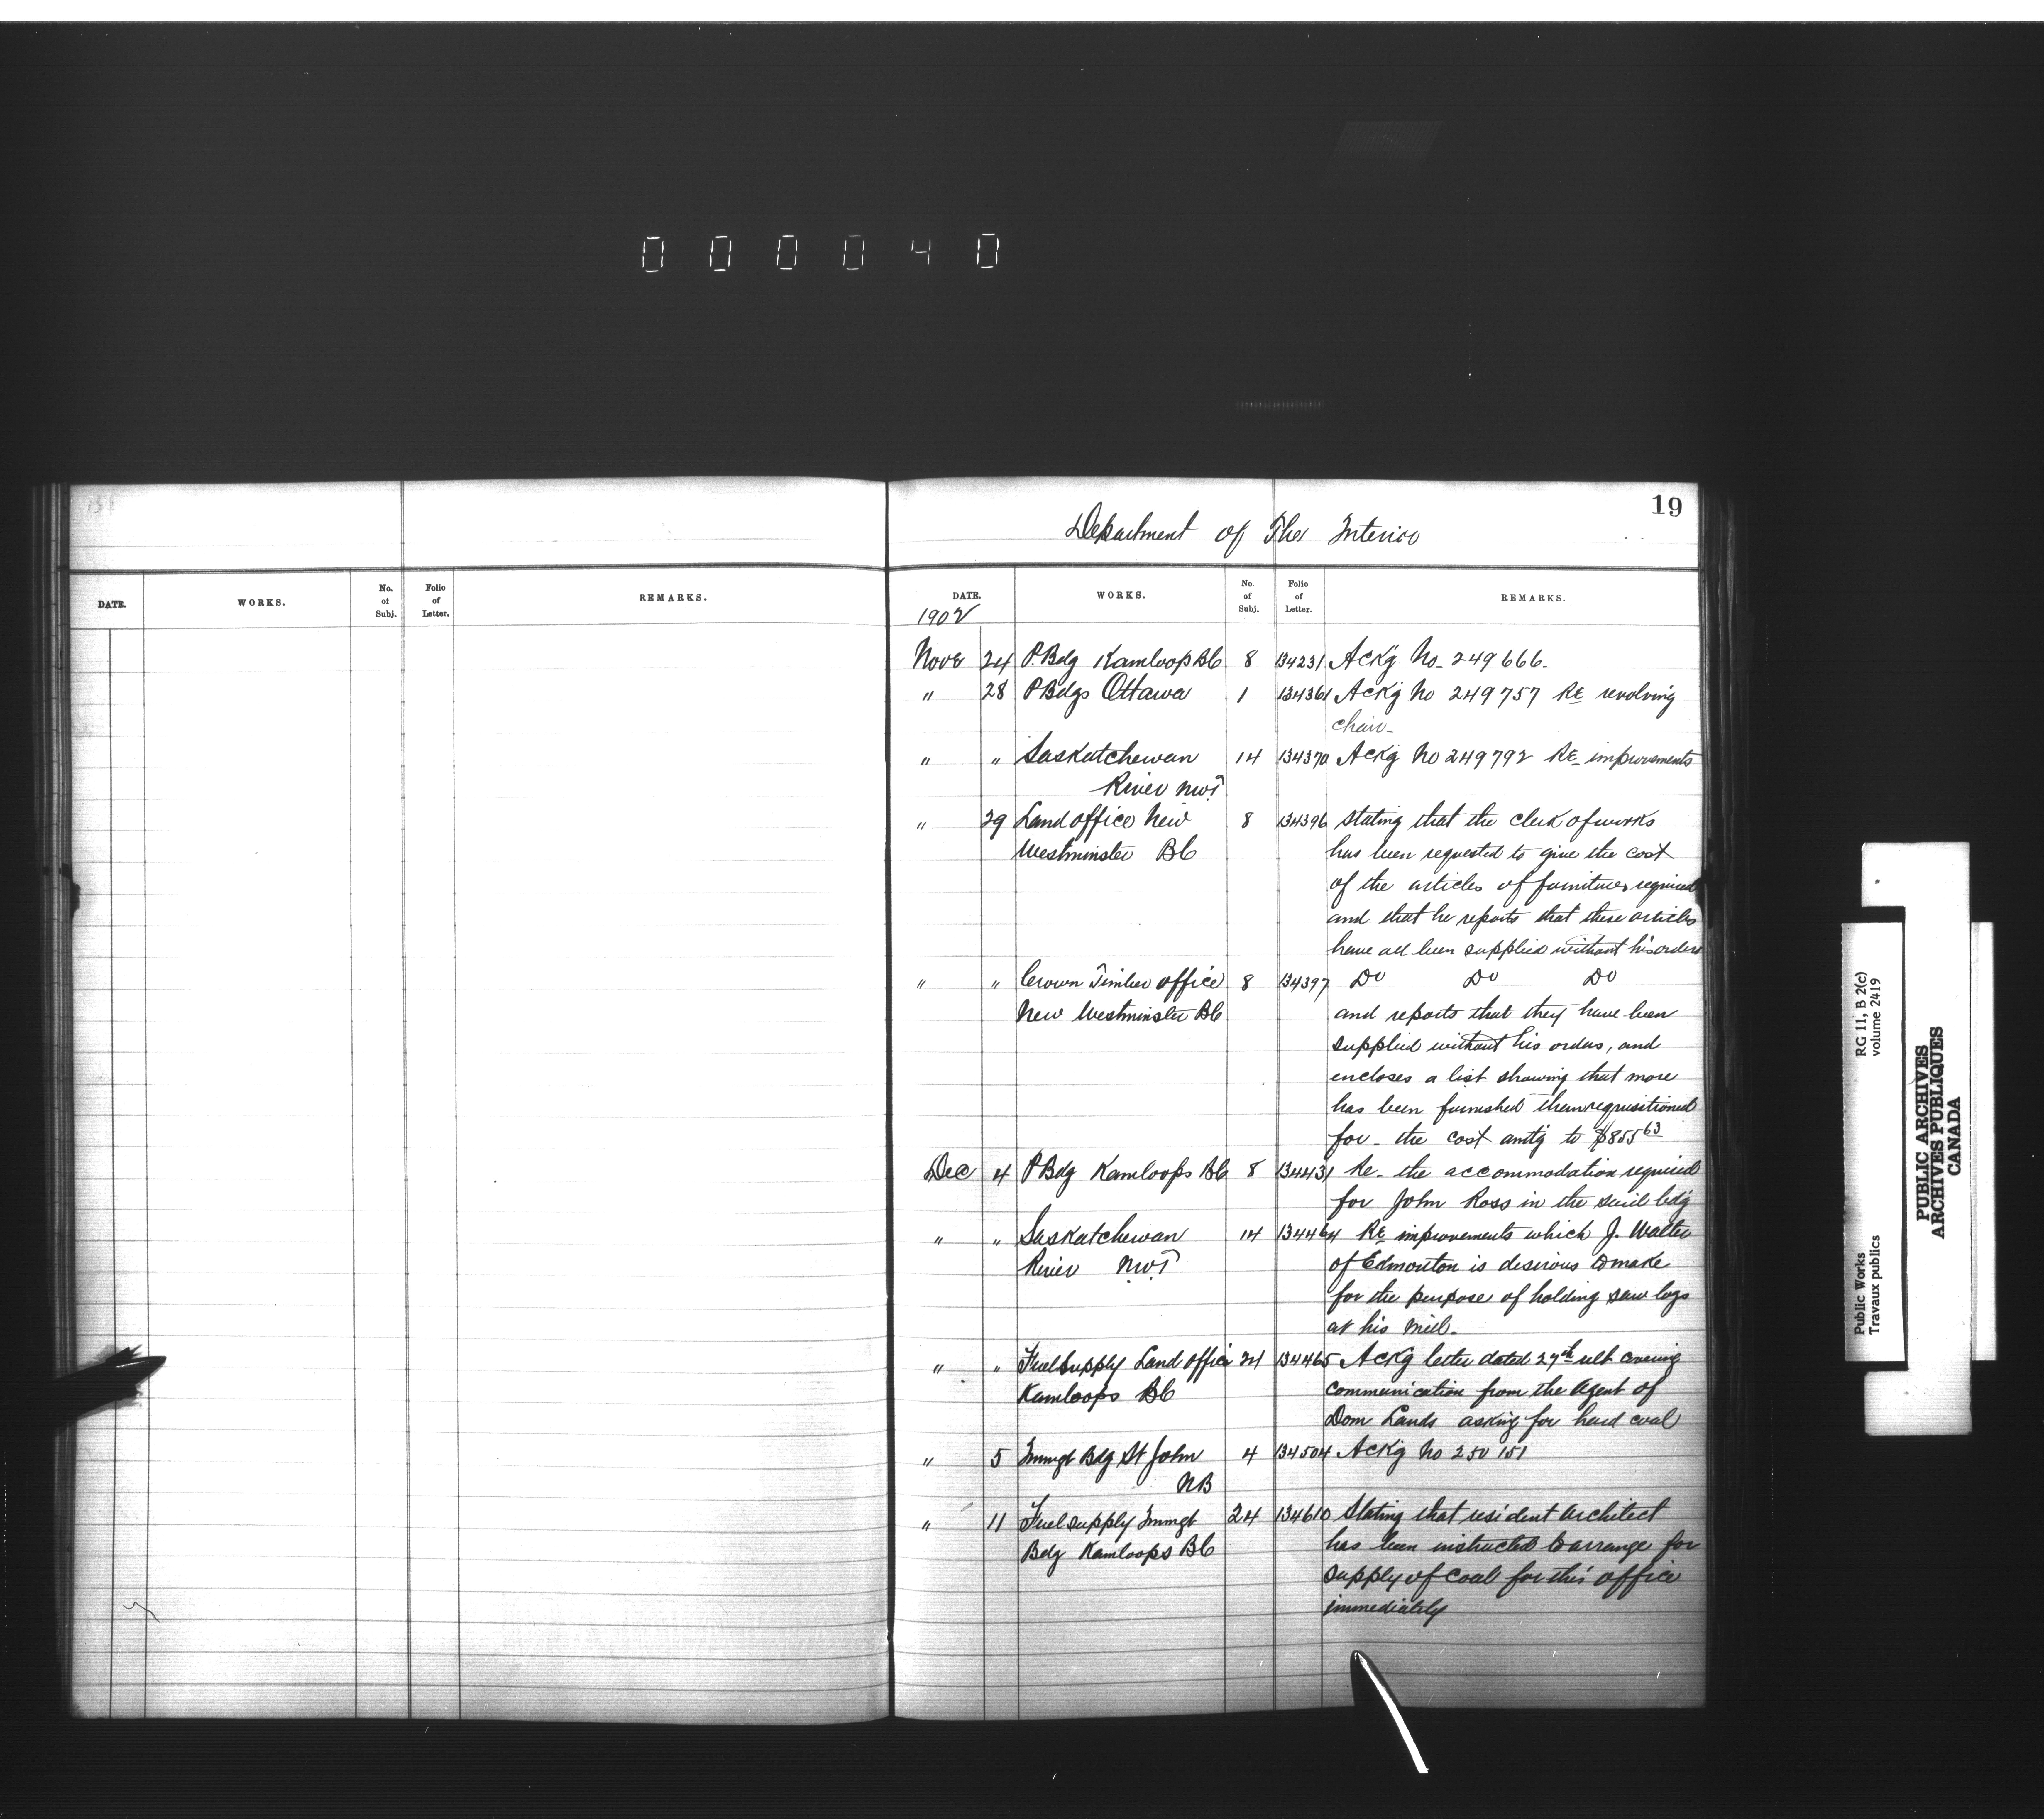 0 0 0 0 4 0
19
Department of The Interior
DATE. WORKS. No. of Subj. Folio of Letter. REMARKS.
DATE. WORKS. No. of Subj. Folio of Letter. REMARKS.
1902
Nove 24 P. Bdg Kamloops BC 8 134231 Ackg No 249666
" 28 P Bdgs Ottawa 1 134361 Ackg No 249757 Re revolving
chair
" " Saskatchewan 14 134370 Ackg No 249792 Re improvements
River NWT
" 29 Land office New 8 134396 stating that the clerk of works
Westminster BC has been requested to give the cost
of the articles of furniture required
and that he reports that these articles
have all been supplied without his orders
" " Crown Timber office 8 134397 Do Do Do
New Westminster BC and reports that they have been
supplied without his orders, and
encloses a list showing that more
has been furnished than requisitioned
for - the cost amtg to $855 63
Dec 4 P Bdg Kamloops BC 8 134431 Re - the accommodation required
for John Ross in the said bdg
" " Saskatchewan 14 134464 Re improvements which J. Walter
River NWT of Edmonton is desirous to make
for the purpose of holding saw logs
at his mill -
" " Fuel Supply Land office 24 134465 Ackg letter dated 27th ult covering
Kamloops BC communication from the Agent of
Dom Lands asking for hard coal
" 5 Immgt Bdg St John 4 134504 Ackg No 250151
NB
" 11 Fuel supply Immgt 24 134610 Stating that resident architect
Bdg Kamloops BC has been instructed to arrange for
supply of coal for this office
immediately
RG 11, B 2(c)
volume 2419
Public Works
Travaux publics
PUBLIC ARCHIVES
ARCHIVES PUBLIQUES
CANADA